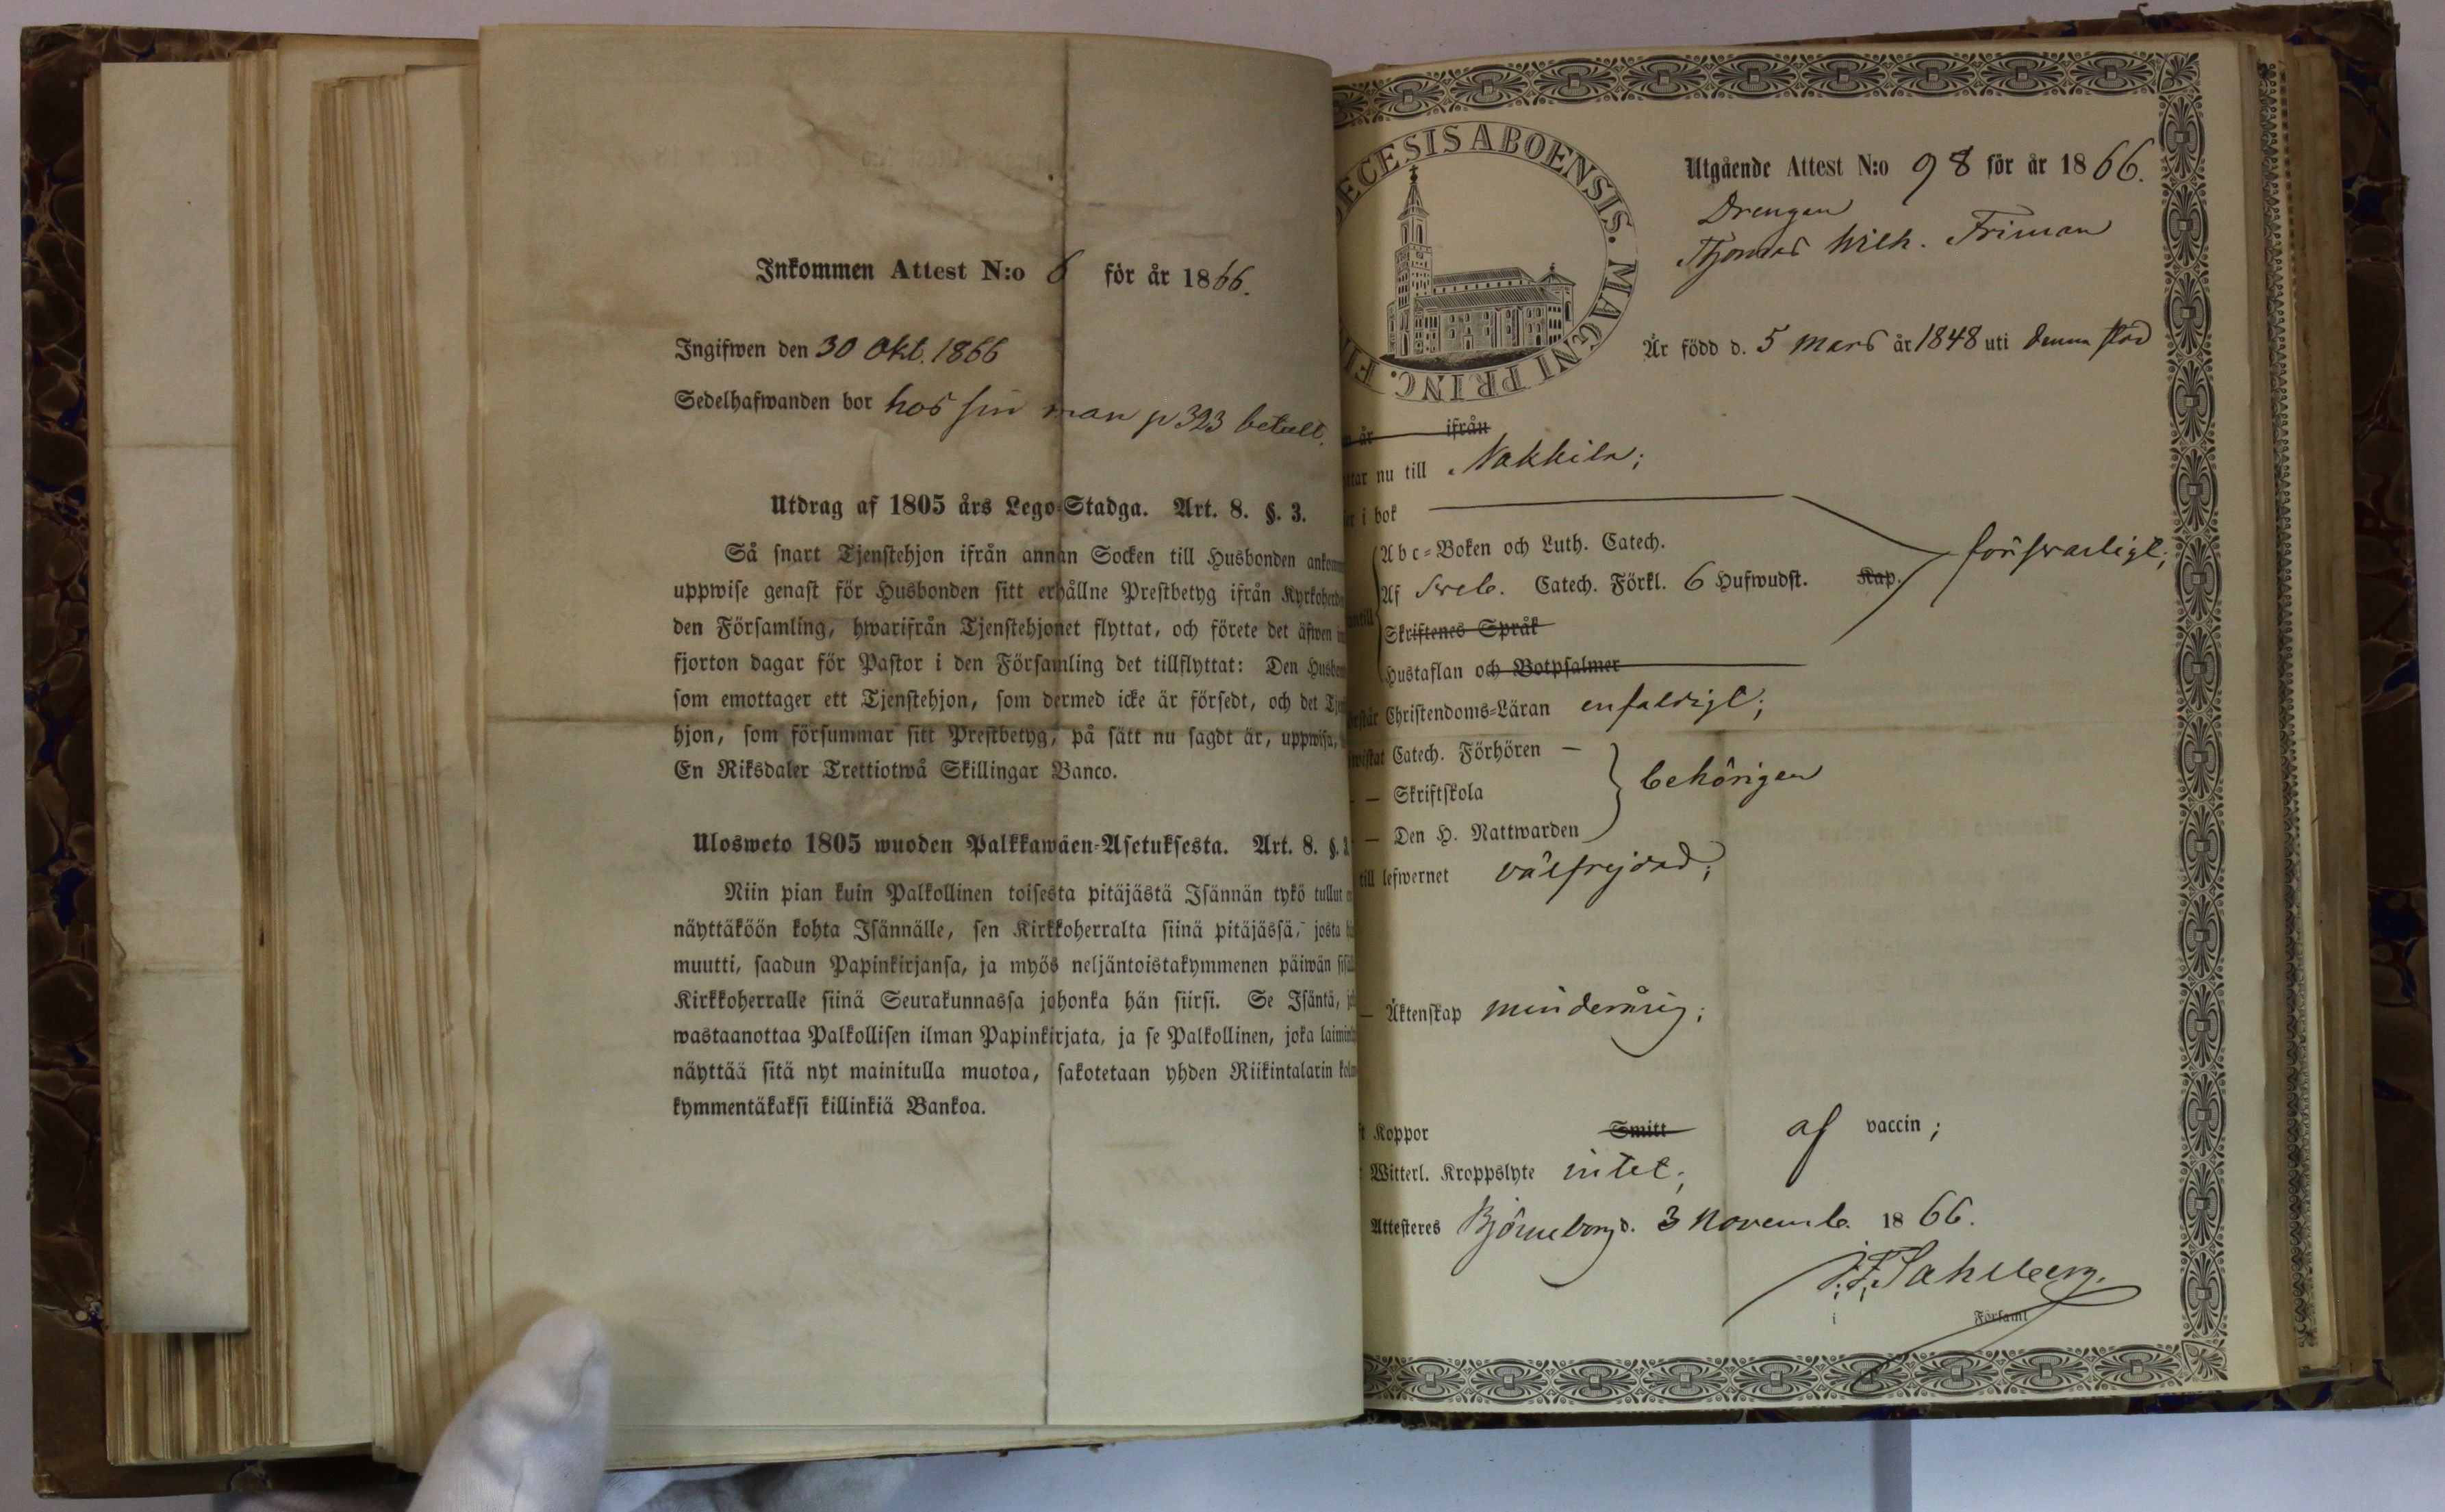 Inkommen Attest N:o 6 för år 1866.
Ingifwen den 30 Okt. 1866
Sedelhafwanden bor hos sin man p 323 betalt.
Utdrag af 1805 års Lego-Stadga. Art. 8. §. 3.
Så snart Tjenstehjon ifrån annan Socken till Husbonden ankomm
uppwise genast för Husbonden sitt erhållne Prestbetyg ifrån Kyrkoherde
den Församling, hwarifrån Tjenstehjonet flyttat, och förete det äfwen in
fjorton dagar för Pastor i den Församling det tillflyttat: Den Husbon
som emottager ett Tjenstehjon, som dermed icke är försedt, och det Tjen
hjon, som försummar sitt Prestbetyg, på sätt nu sagdt är, uppwisa,
En Riksdaler Trettiotwå Skillingar Banco.
Ulosweto 1805 wuoden Palkkawäen-Asetuksesta. Art. 8. §. 3
Niin pian kuin Palkollinen toisesta pitäjästä Isännän tykö tullut
näyttäköön kohta Isännälle, sen Kirkkoherralta siinä pitäjässä, josta
muutti, saadun Papinkirjansa, ja myös neljäntoistakymmenen päiwän sisäl
Kirkkoherralle siinä Seurakunnassa johonka hän siirsi. Se Isäntä, jo
wastaanottaa Palkollisen ilman Papinkirjata, ja se Palkollinen, joka laimin
näyttää sitä nyt mainitulla muotoa, sakotetaan yhden Riikintalarin kolm
kymmentäkaksi killinkiä Bankoa.
ECESIS ABOENSIS. MAGNI PRINC. FI
Utgående Attest N:o 98 för år 1866.
Drengen
Thomas Wilh. Friman
Är född d. 5 Mars år 1848 uti denna stad
år ifrån
ttar nu till Nakkila;
r i bok
Abc-Boken och Luth. Catech.
Af Sveb. Catech. Förkl. 6 Hufwudst. Kap. försvarligt;
Skriftenes Språk
Hustaflan och Botpsalmer
rstår Christendoms-Läran enfaldigt;
wistat Catech. Förhören —
— Skriftskola behörigen
— Den H. Nattwarden
till lefwernet välfrejdad;
— Äktenskap minderårig;
t Koppor Smitt af vaccin;
Witterl. Kroppslyte intet;
Attesteres Björneborg d. 3 Novemb. 1866.
J. F. Sahlberg.
i Församl